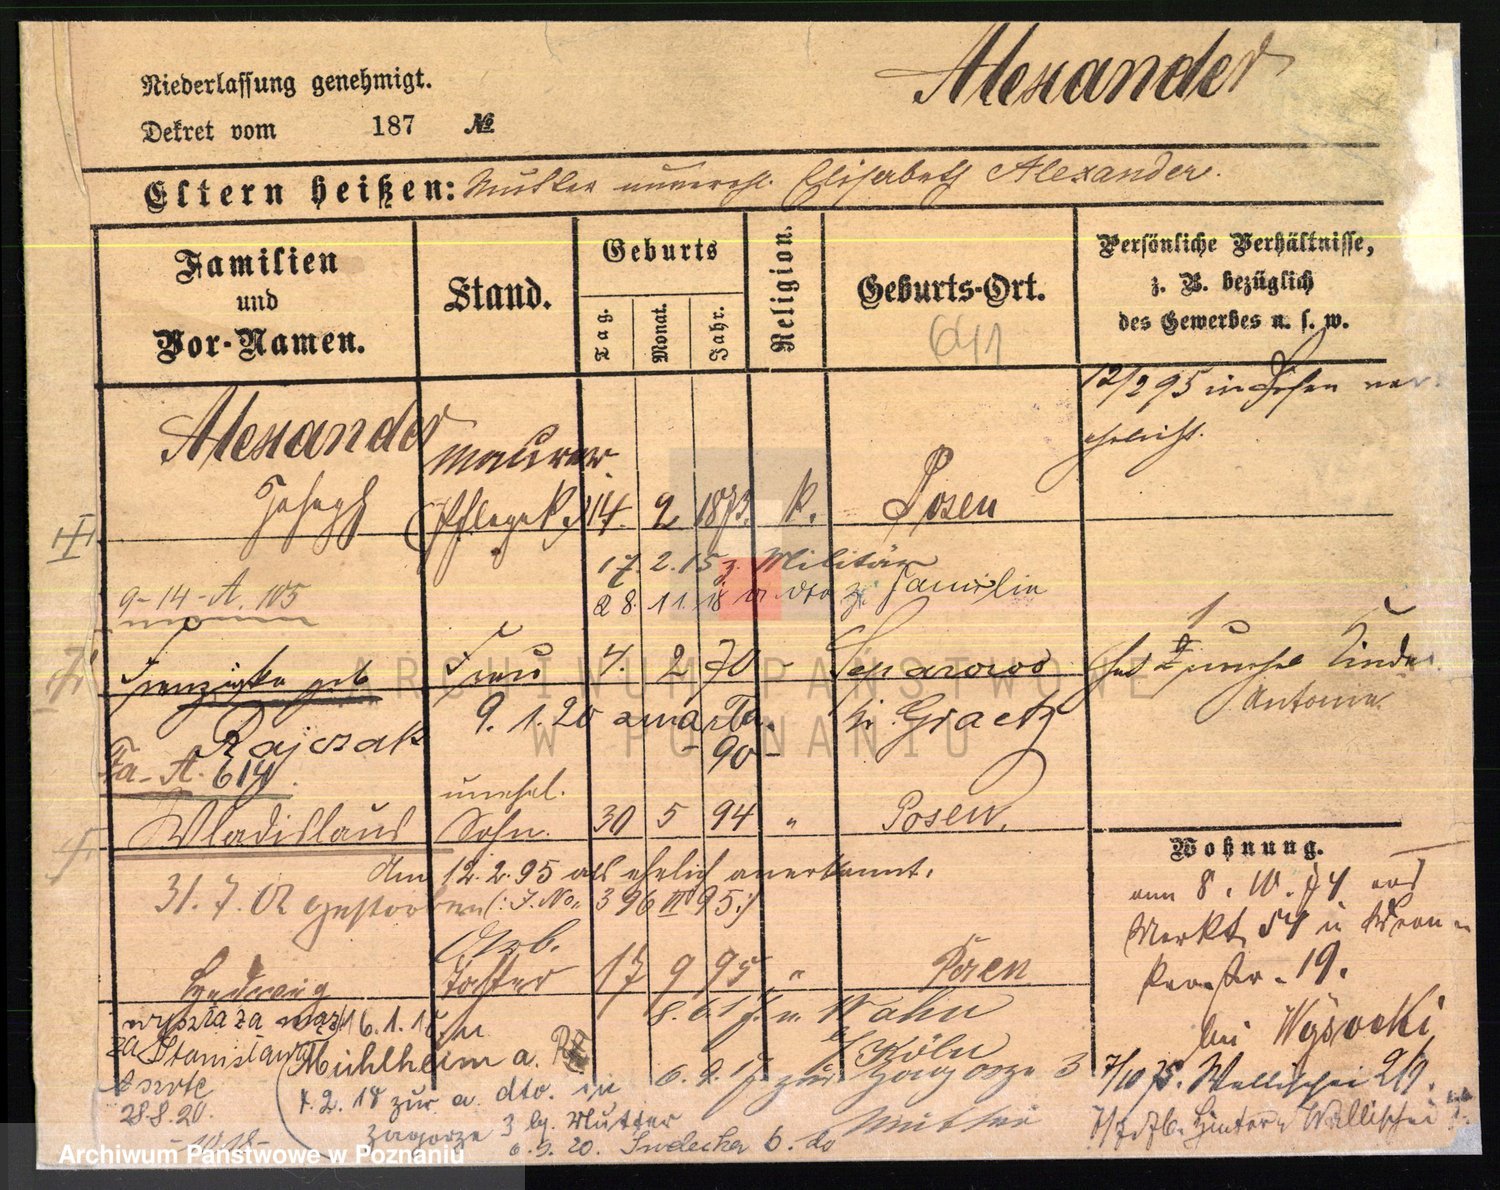 Alexander
Niederlassung genehmigt.
Dekret vom 187 №
Eltern heißen: Mutter unverehl. Elisabeth Alexander.
Familien und Vor-Namen.
Stand.
Geburts
Tag. Monat. Jahr.
Religion.
Geburts-Ort.
641
Persönliche Verhältnisse,
z. B. bezüglich
des Gewerbes u. s. w.
12/2 95 in Posen ver
ehelicht.
Alexander Maurer.
Joseph (Pflegek.) 14. 2 1873. k. Posen
17. 2. 15 z. Militär
28. 11. 18 v. dto z. Familie
9-14-A. 105
Franziska geb Frau 4. 2 70 - Separowo
Rajczak 9. 1. 20 k. Graetz
- 90 -
hat 1 unehel Kinder
Antonie
Fa-A. 614.
unehel.
Wladislaus Sohn. 30 5 94 " Posen.
Am 12. 2. 95 als ehelich anerkannt.
31. 7. 02 gestorben (: J. No. 396 III 95 :)
Hedwig Tochter 17 9 95 " Posen
8. 6. 17. n. Wahn
b/ Köln
wyszła za mąż
za Stanisława
28.8.20.
16. 1. 18. n
Mühlheim a. Rh
6. 9. 17 zur Zagorze 3
Mutter
4. 2. 18 zur a. dto. in
Zagorze 3 bg. Mutter
6. 9. 20. 6. do
Wohnung.
am 8. 10. 74 aus
Markt 54 n Wron
kerstr. 19.
bei Wysocki
7/10 75. Wallischei 2/9.
Hinter Wallischei
ARCHIWUM PAŃSTWOWE
W POZNANIU
Archiwum Państwowe w Poznaniu